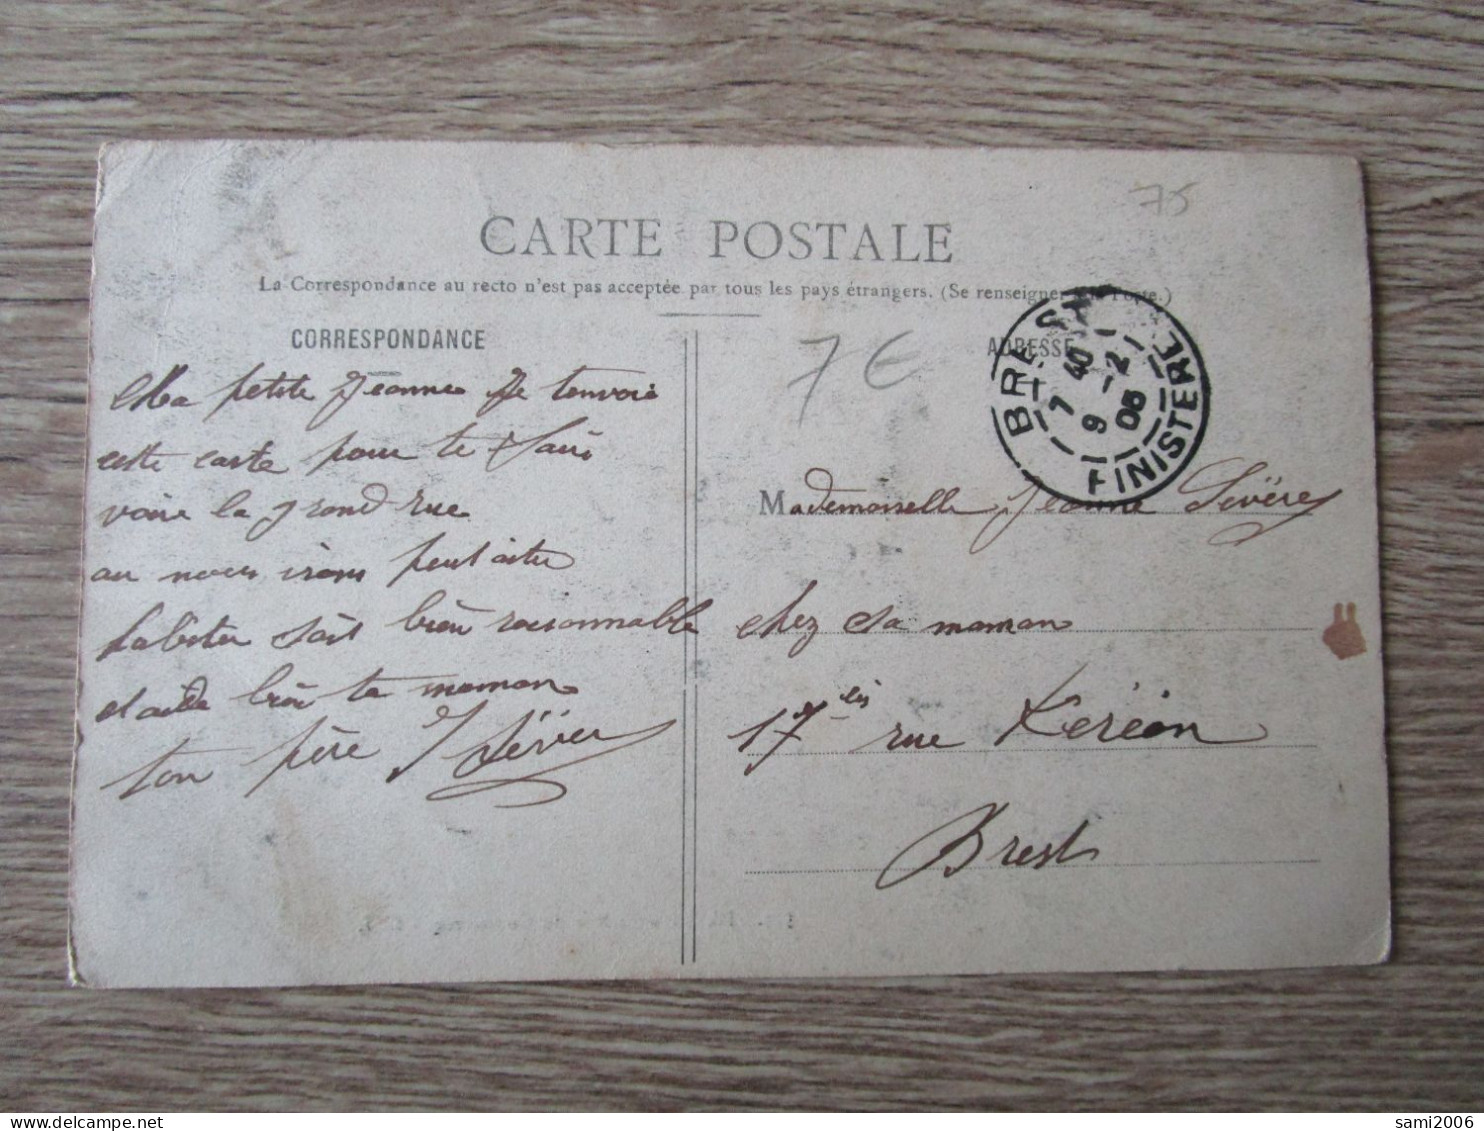 75
CARTE POSTALE
La Correspondance au recto n'est pas acceptée par tous les pays étrangers. (Se renseigner à la Poste.)
CORRESPONDANCE
Ma petite Jeanne Je tenvoie
cette carte pour te faire
voire la grand rue
au nous irons peut aitre
habiter soit bien raisonnable
et aide bien ta maman
ton père
7 €
ADRESSE
BREST
7 40
9 -2
06
FINISTERE
Mademoiselle Jeanne
chez sa maman
17 bis rue Keréon
Brest
sami2006